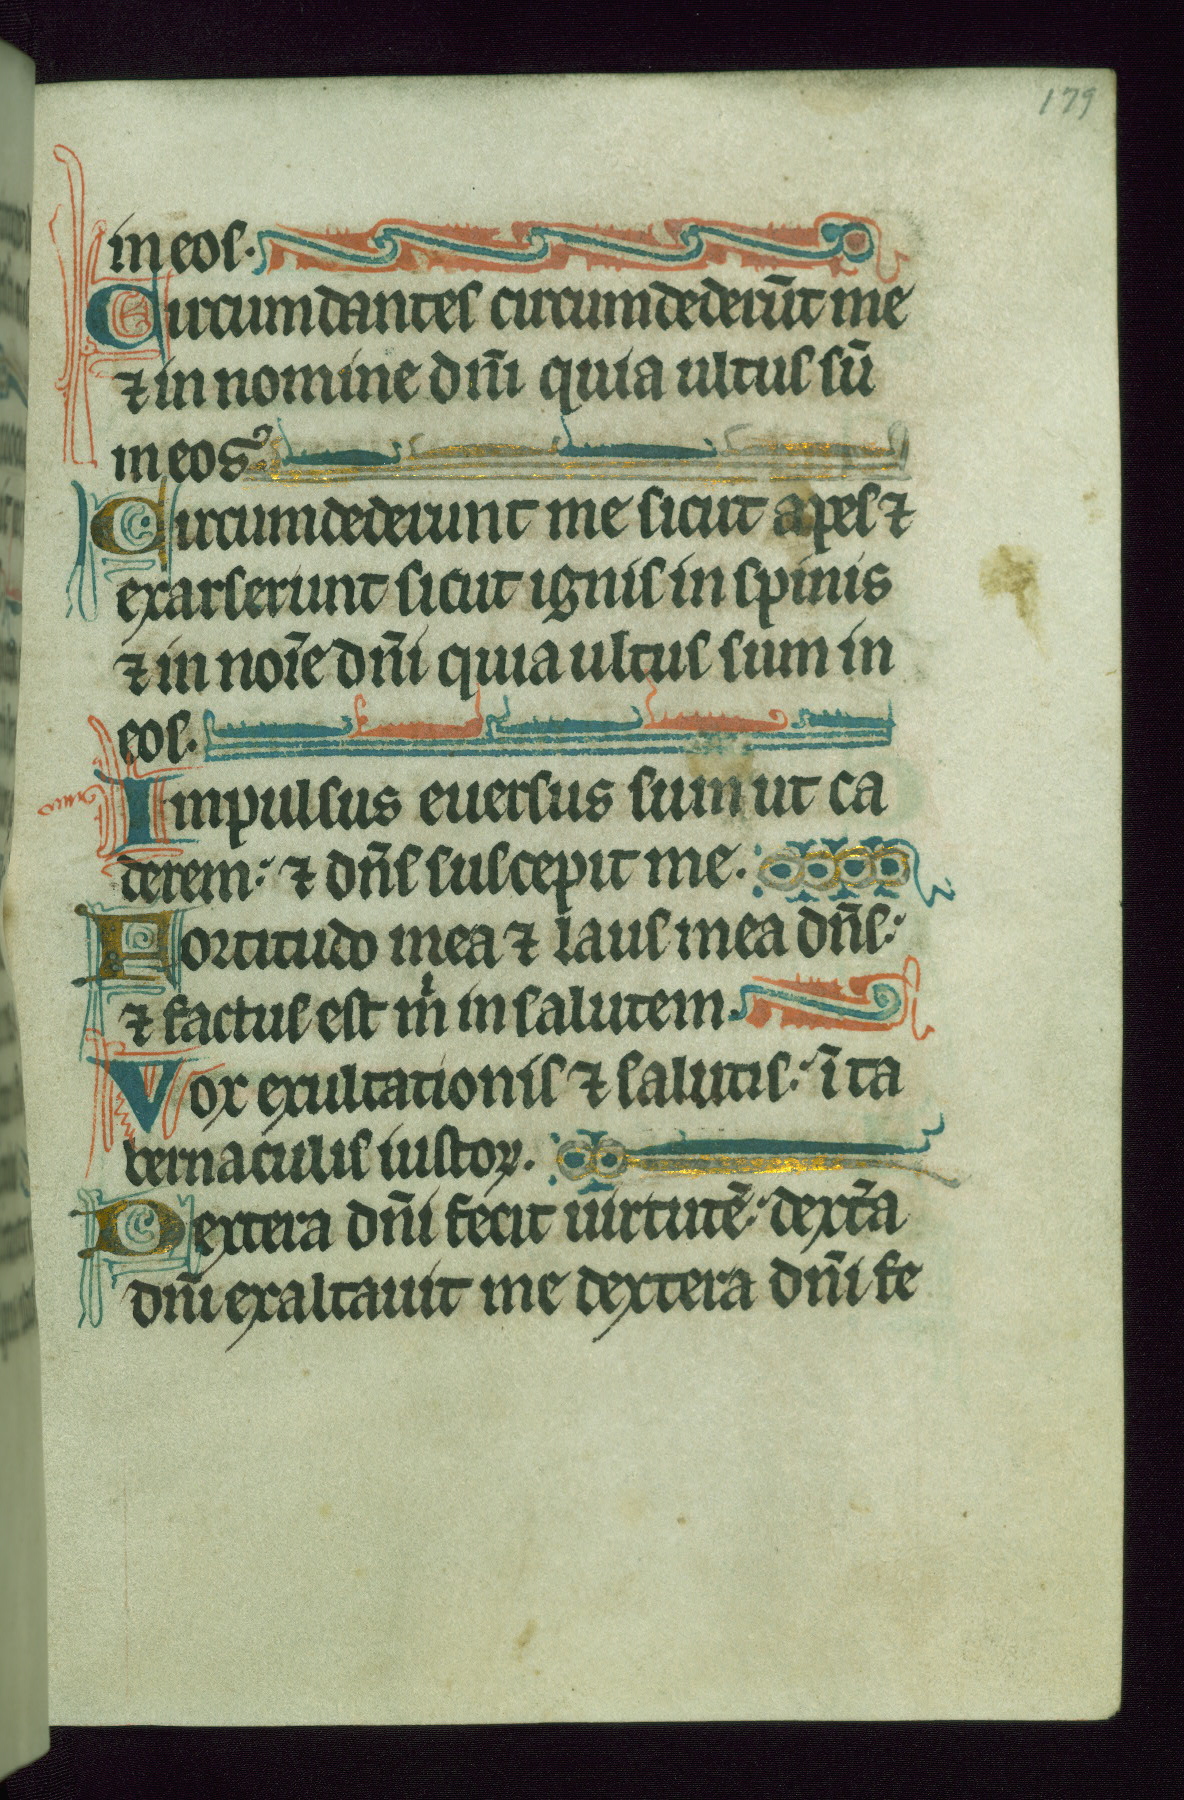 179
in eos.
Circumdantes circumdederūt me
⁊ in nomine dn̄i quia ultus sū
in eos
Circumdederunt me sicut apes ⁊
exarserunt sicut ignis in spinis
⁊ in noīe dn̄i quia ultus sum in
eos.
Impulsus euersus sum ut ca
derem: ⁊ dn̄s suscepit me.
Fortitudo mea ⁊ laus mea dn̄s:
⁊ factus est m̍ in salutem.
Vox exultationis ⁊ salutis: ī ta
bernaculis iustoꝝ.
Dextera dn̄i fecit uirtutē: dext̄a
dn̄i exaltauit me dextera dn̄i fe